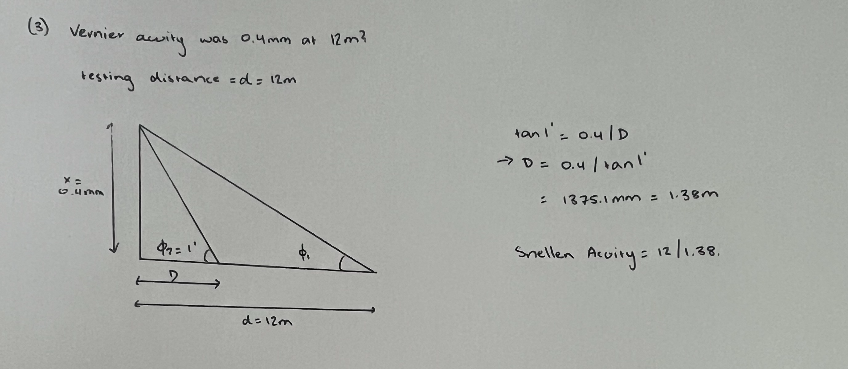 (3) Vernier acuity was 0.4mm at 12m?
testing distance = d = 12m
x =
0.4mm
ϕ₂ = 1'
ϕ₁
D
d = 12m
tan1' = 0.4/D
→ D = 0.4/tan1'
= 1375.1mm = 1.38m
Snellen Acuity = 12/1.38.